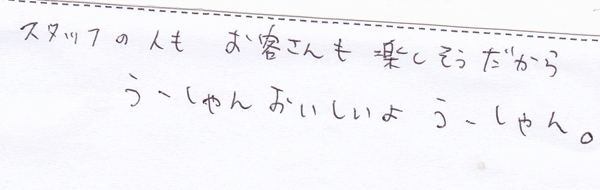 スタッフの人も お客さんも 楽しそうだから
うーしゃん おいしいよ うーしゃん。